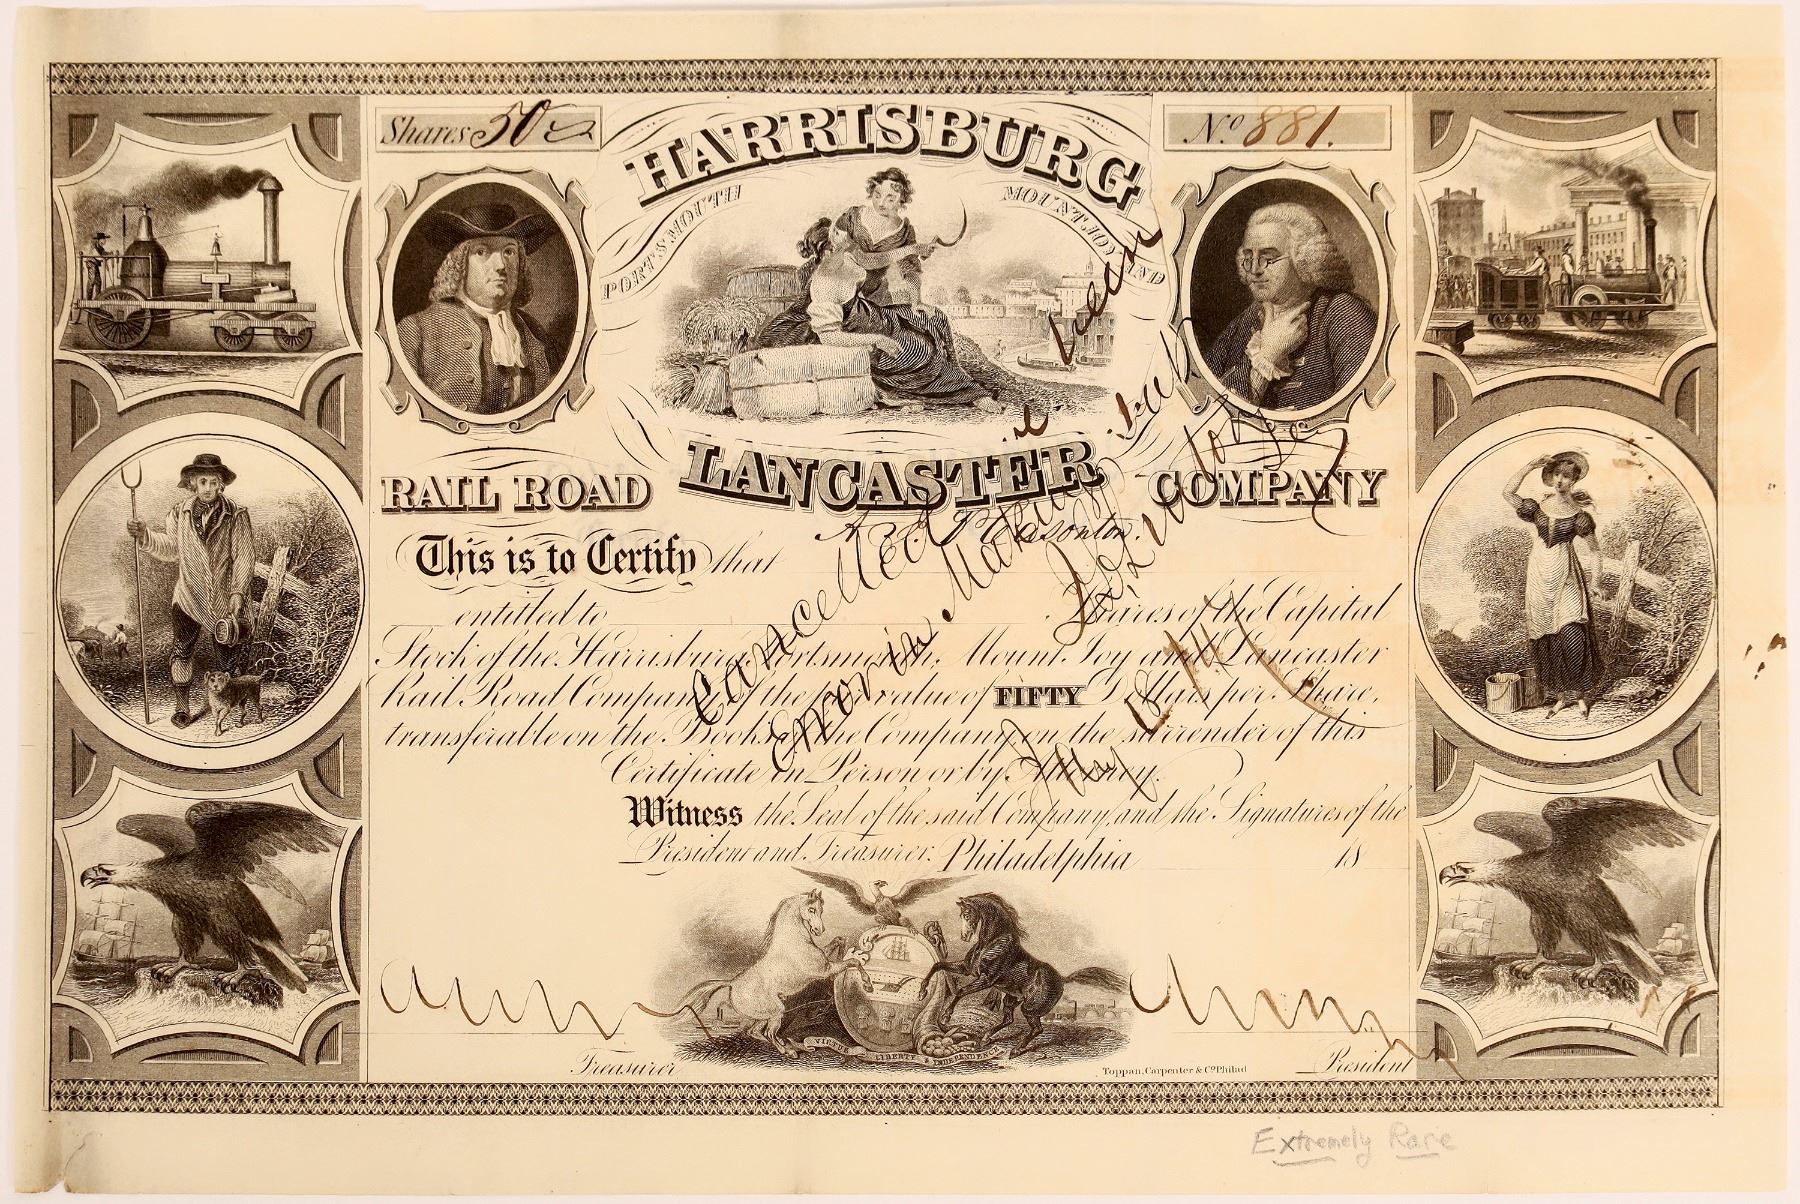 Shares 50
No. 881.
HARRISBURG
PORTSMOUTH
MOUNT JOY AND
LANCASTER
RAIL ROAD
COMPANY
This is to Certify that
entitled to Shares of the Capital
Stock of the Harrisburg, Portsmouth, Mount Joy and Lancaster
Rail Road Company of the par value of FIFTY Dollars per Share,
transferable on the Books of the Company on the surrender of this
Certificate in Person or by Attorney.
Witness the Seal of the said Company, and the Signatures of the
President and Treasurer. Philadelphia 18
Cancelled
Error in Making
May 18
VIRTUE LIBERTY & INDEPENDENCE
Treasurer
Toppan, Carpenter & Co. Philad
President
Extremely Rare